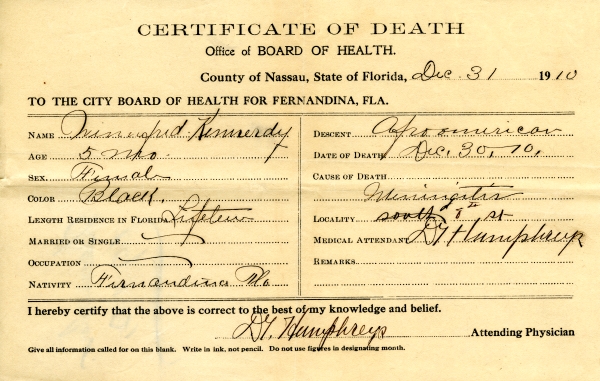 CERTIFICATE OF DEATH
Office of BOARD OF HEALTH.
County of Nassau, State of Florida, Dec. 31 1910
TO THE CITY BOARD OF HEALTH FOR FERNANDINA, FLA.
NAME Winnifred Kennerdy
AGE 5 mo.
SEX. Female
COLOR Black.
LENGTH RESIDENCE IN FLORIDA
MARRIED OR SINGLE
OCCUPATION
NATIVITY Fernandina Fla
DESCENT
DATE OF DEATH Dec. 30, 10,
CAUSE OF DEATH
Meningitis
LOCALITY south 8th st
MEDICAL ATTENDANT Humphreys
REMARKS
I hereby certify that the above is correct to the best of my knowledge and belief.
Humphreys Attending Physician
Give all information called for on this blank. Write in ink, not pencil. Do not use figures in designating month.